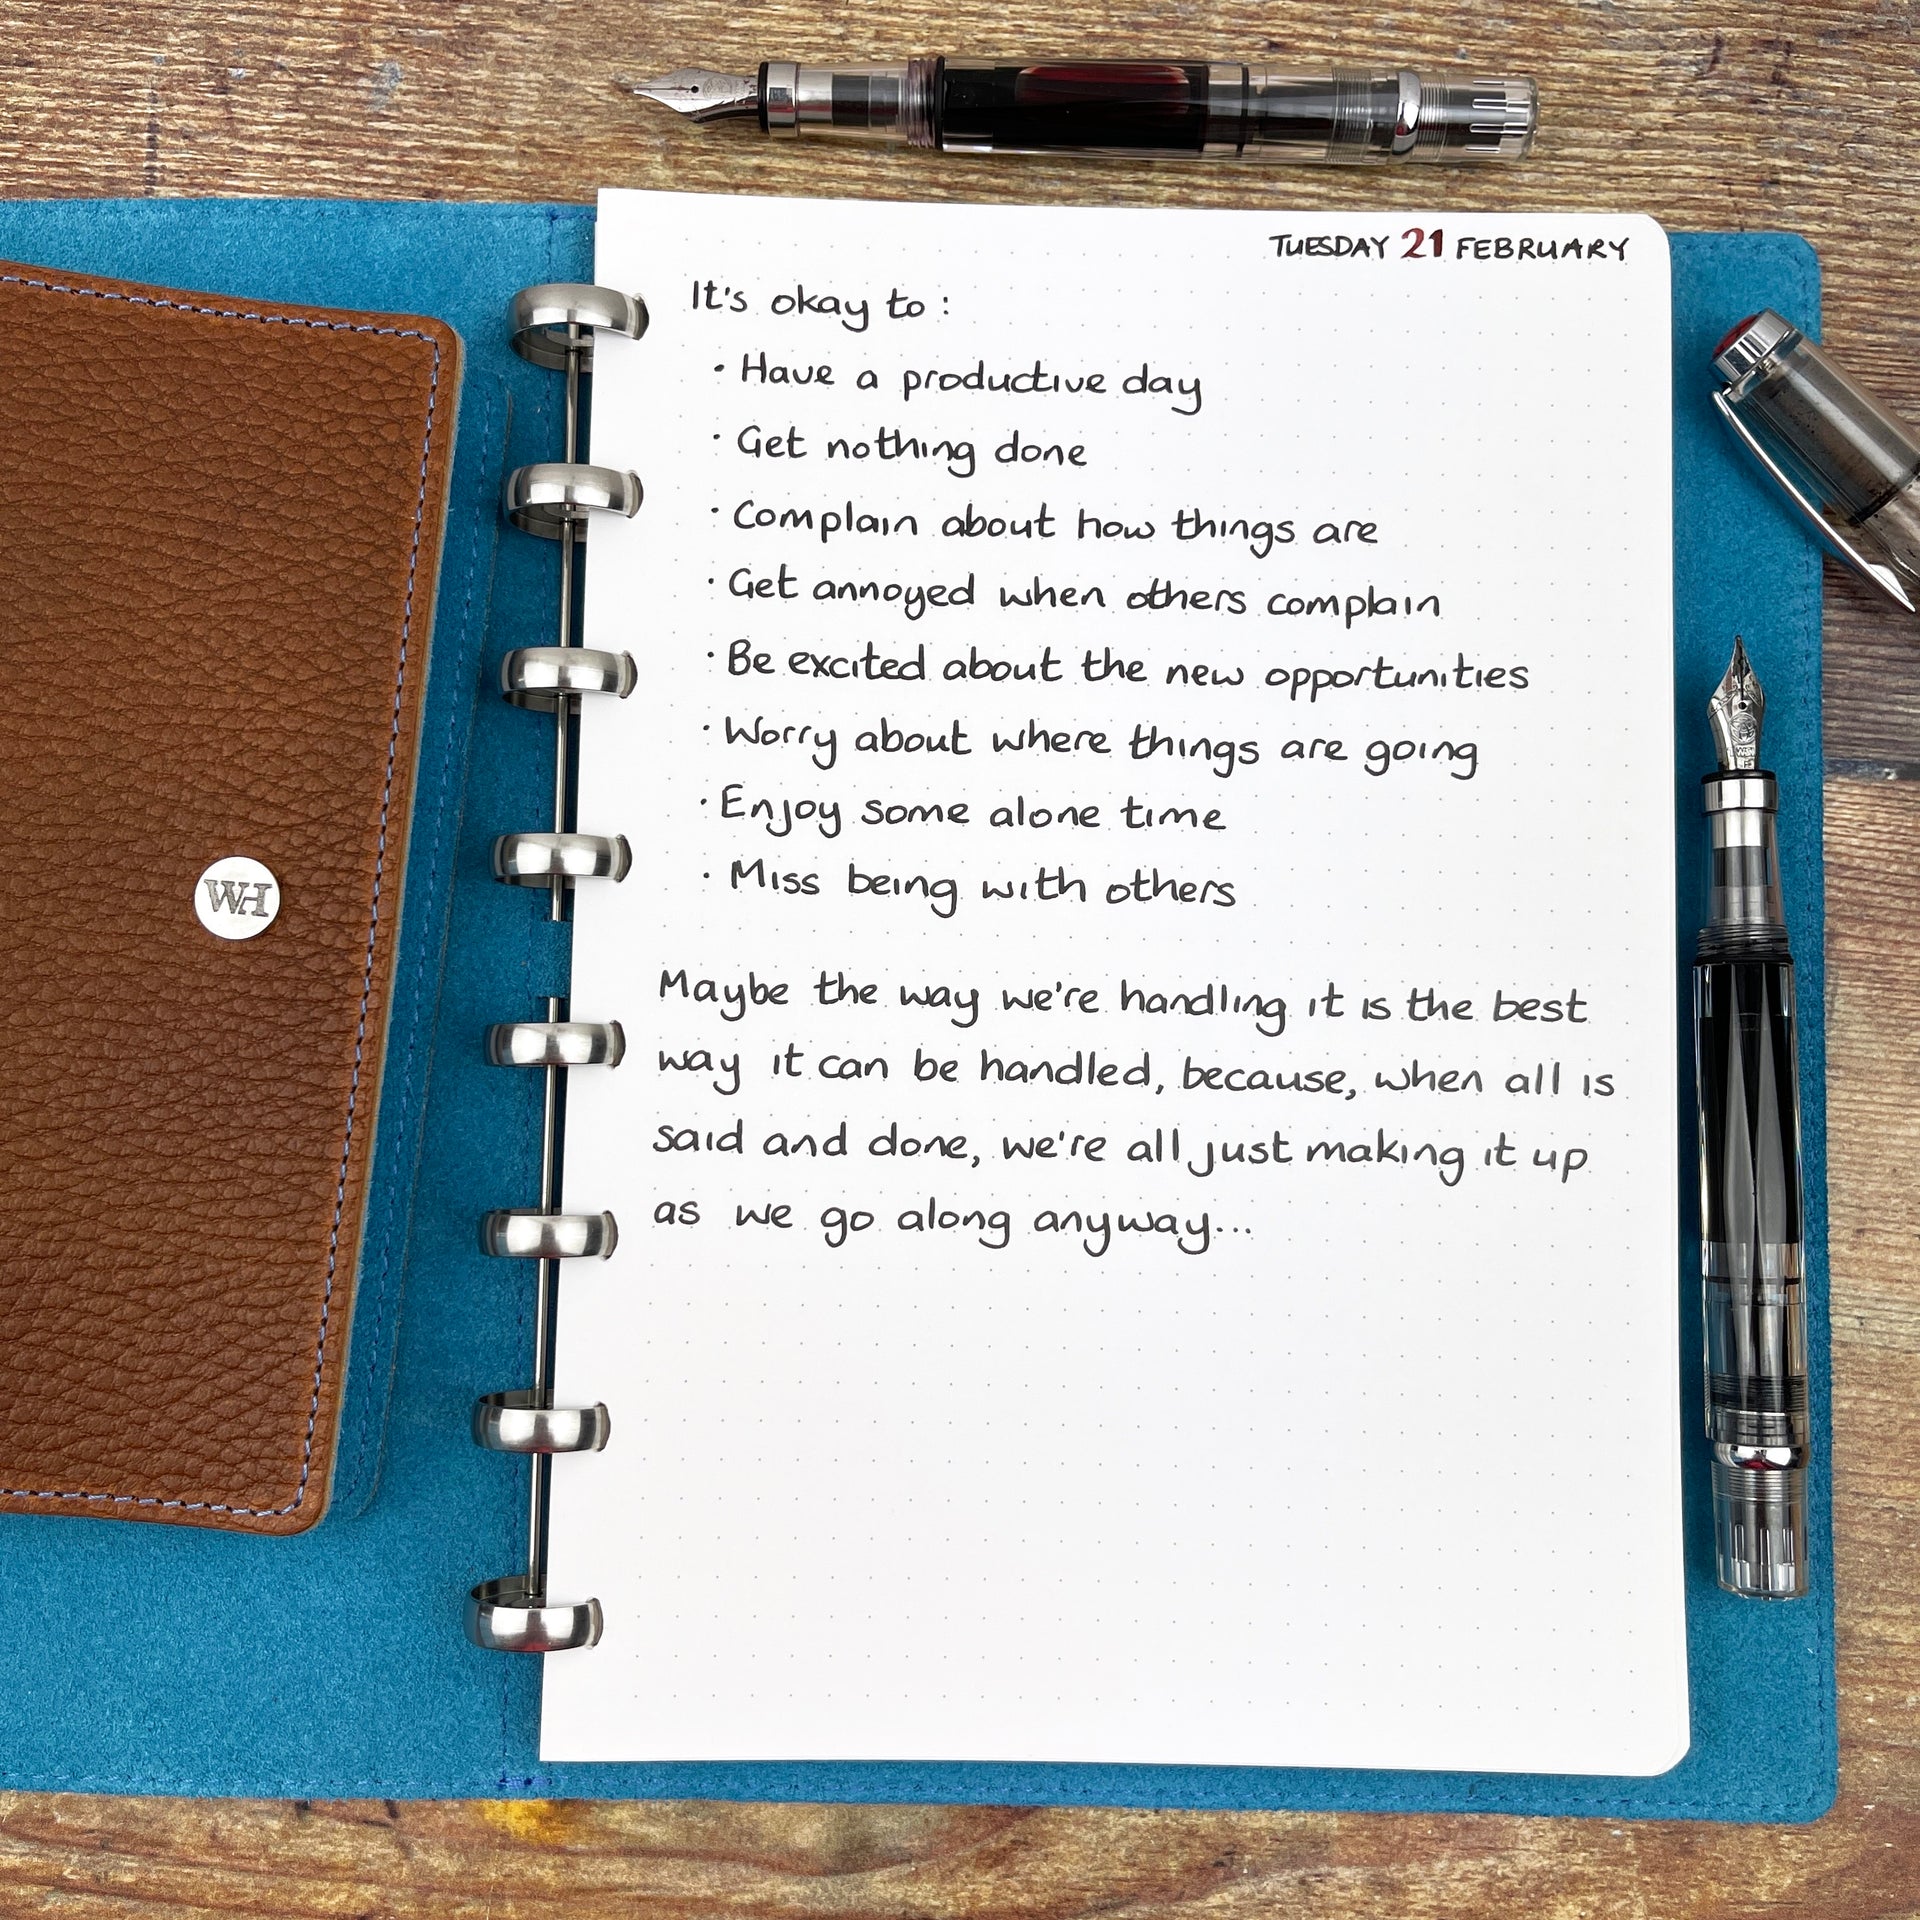 TUESDAY 21 FEBRUARY
It's okay to:
· Have a productive day
· Get nothing done
· Complain about how things are
· Get annoyed when others complain
· Be excited about the new opportunities
· Worry about where things are going
· Enjoy some alone time
· Miss being with others
Maybe the way we're handling it is the best
way it can be handled, because, when all is
said and done, we're all just making it up
as we go along anyway...
WH